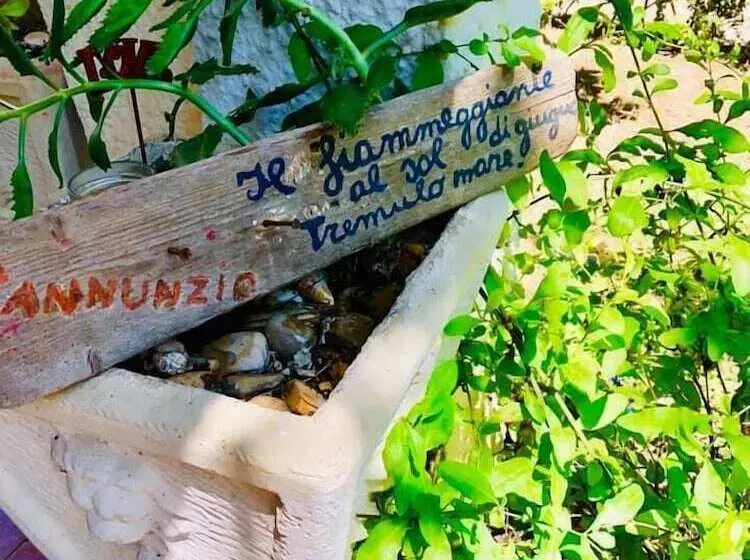 Il fiammeggiante
al sol di giugno
Tremulo mare!
'ANNUNZIO